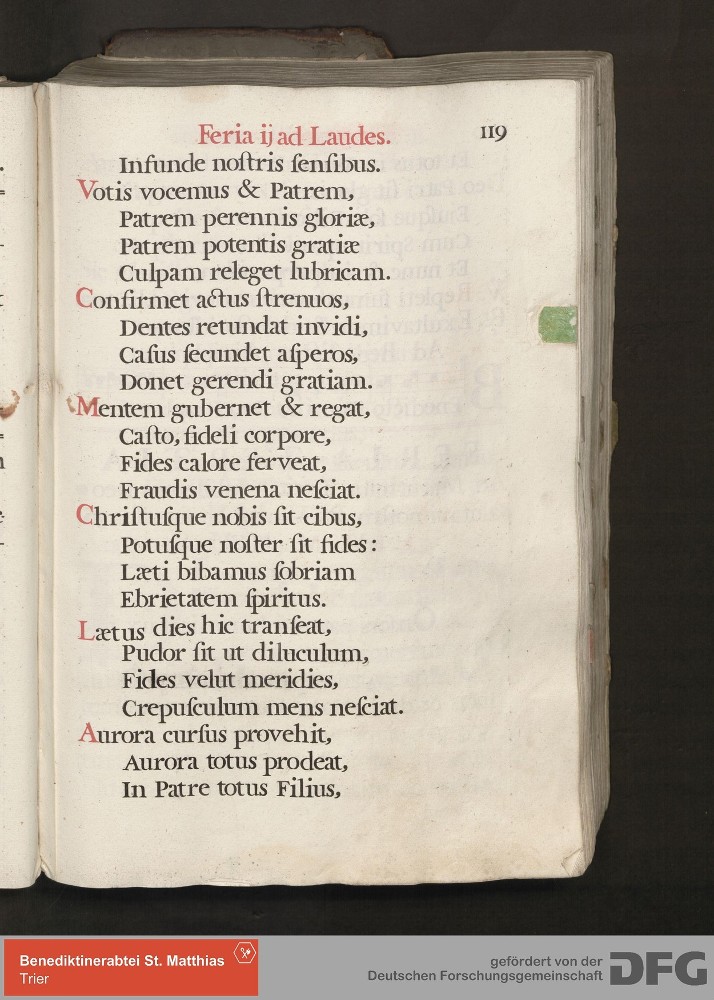 Feria ij ad Laudes. 119
Infunde noſtris ſenſibus.
Votis vocemus & Patrem,
Patrem perennis gloriæ,
Patrem potentis gratiæ
Culpam releget lubricam.
Confirmet actus ſtrenuos,
Dentes retundat invidi,
Caſus ſecundet aſperos,
Donet gerendi gratiam.
Mentem gubernet & regat,
Caſto, fideli corpore,
Fides calore ferveat,
Fraudis venena neſciat.
Chriſtuſque nobis ſit cibus,
Potuſque noſter ſit fides:
Læti bibamus ſobriam
Ebrietatem ſpiritus.
Lætus dies hic tranſeat,
Pudor ſit ut diluculum,
Fides velut meridies,
Crepuſculum mens neſciat.
Aurora curſus provehit,
Aurora totus prodeat,
In Patre totus Filius,
Benediktinerabtei St. Matthias
Trier
gefördert von der
Deutschen Forschungsgemeinschaft
DFG